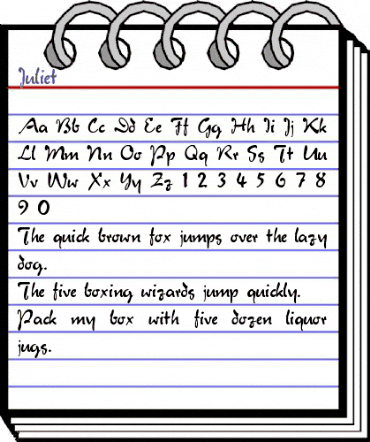 Juliet
Aa Bb Cc Dd Ee Ff Gg Hh Ii Jj Kk
Ll Mm Nn Oo Pp Qq Rr Ss Tt Uu
Vv Ww Xx Yy Zz 1 2 3 4 5 6 7 8
9 0
The quick brown fox jumps over the lazy
dog.
The five boxing wizards jump quickly.
Pack my box with five dozen liquor
jugs.